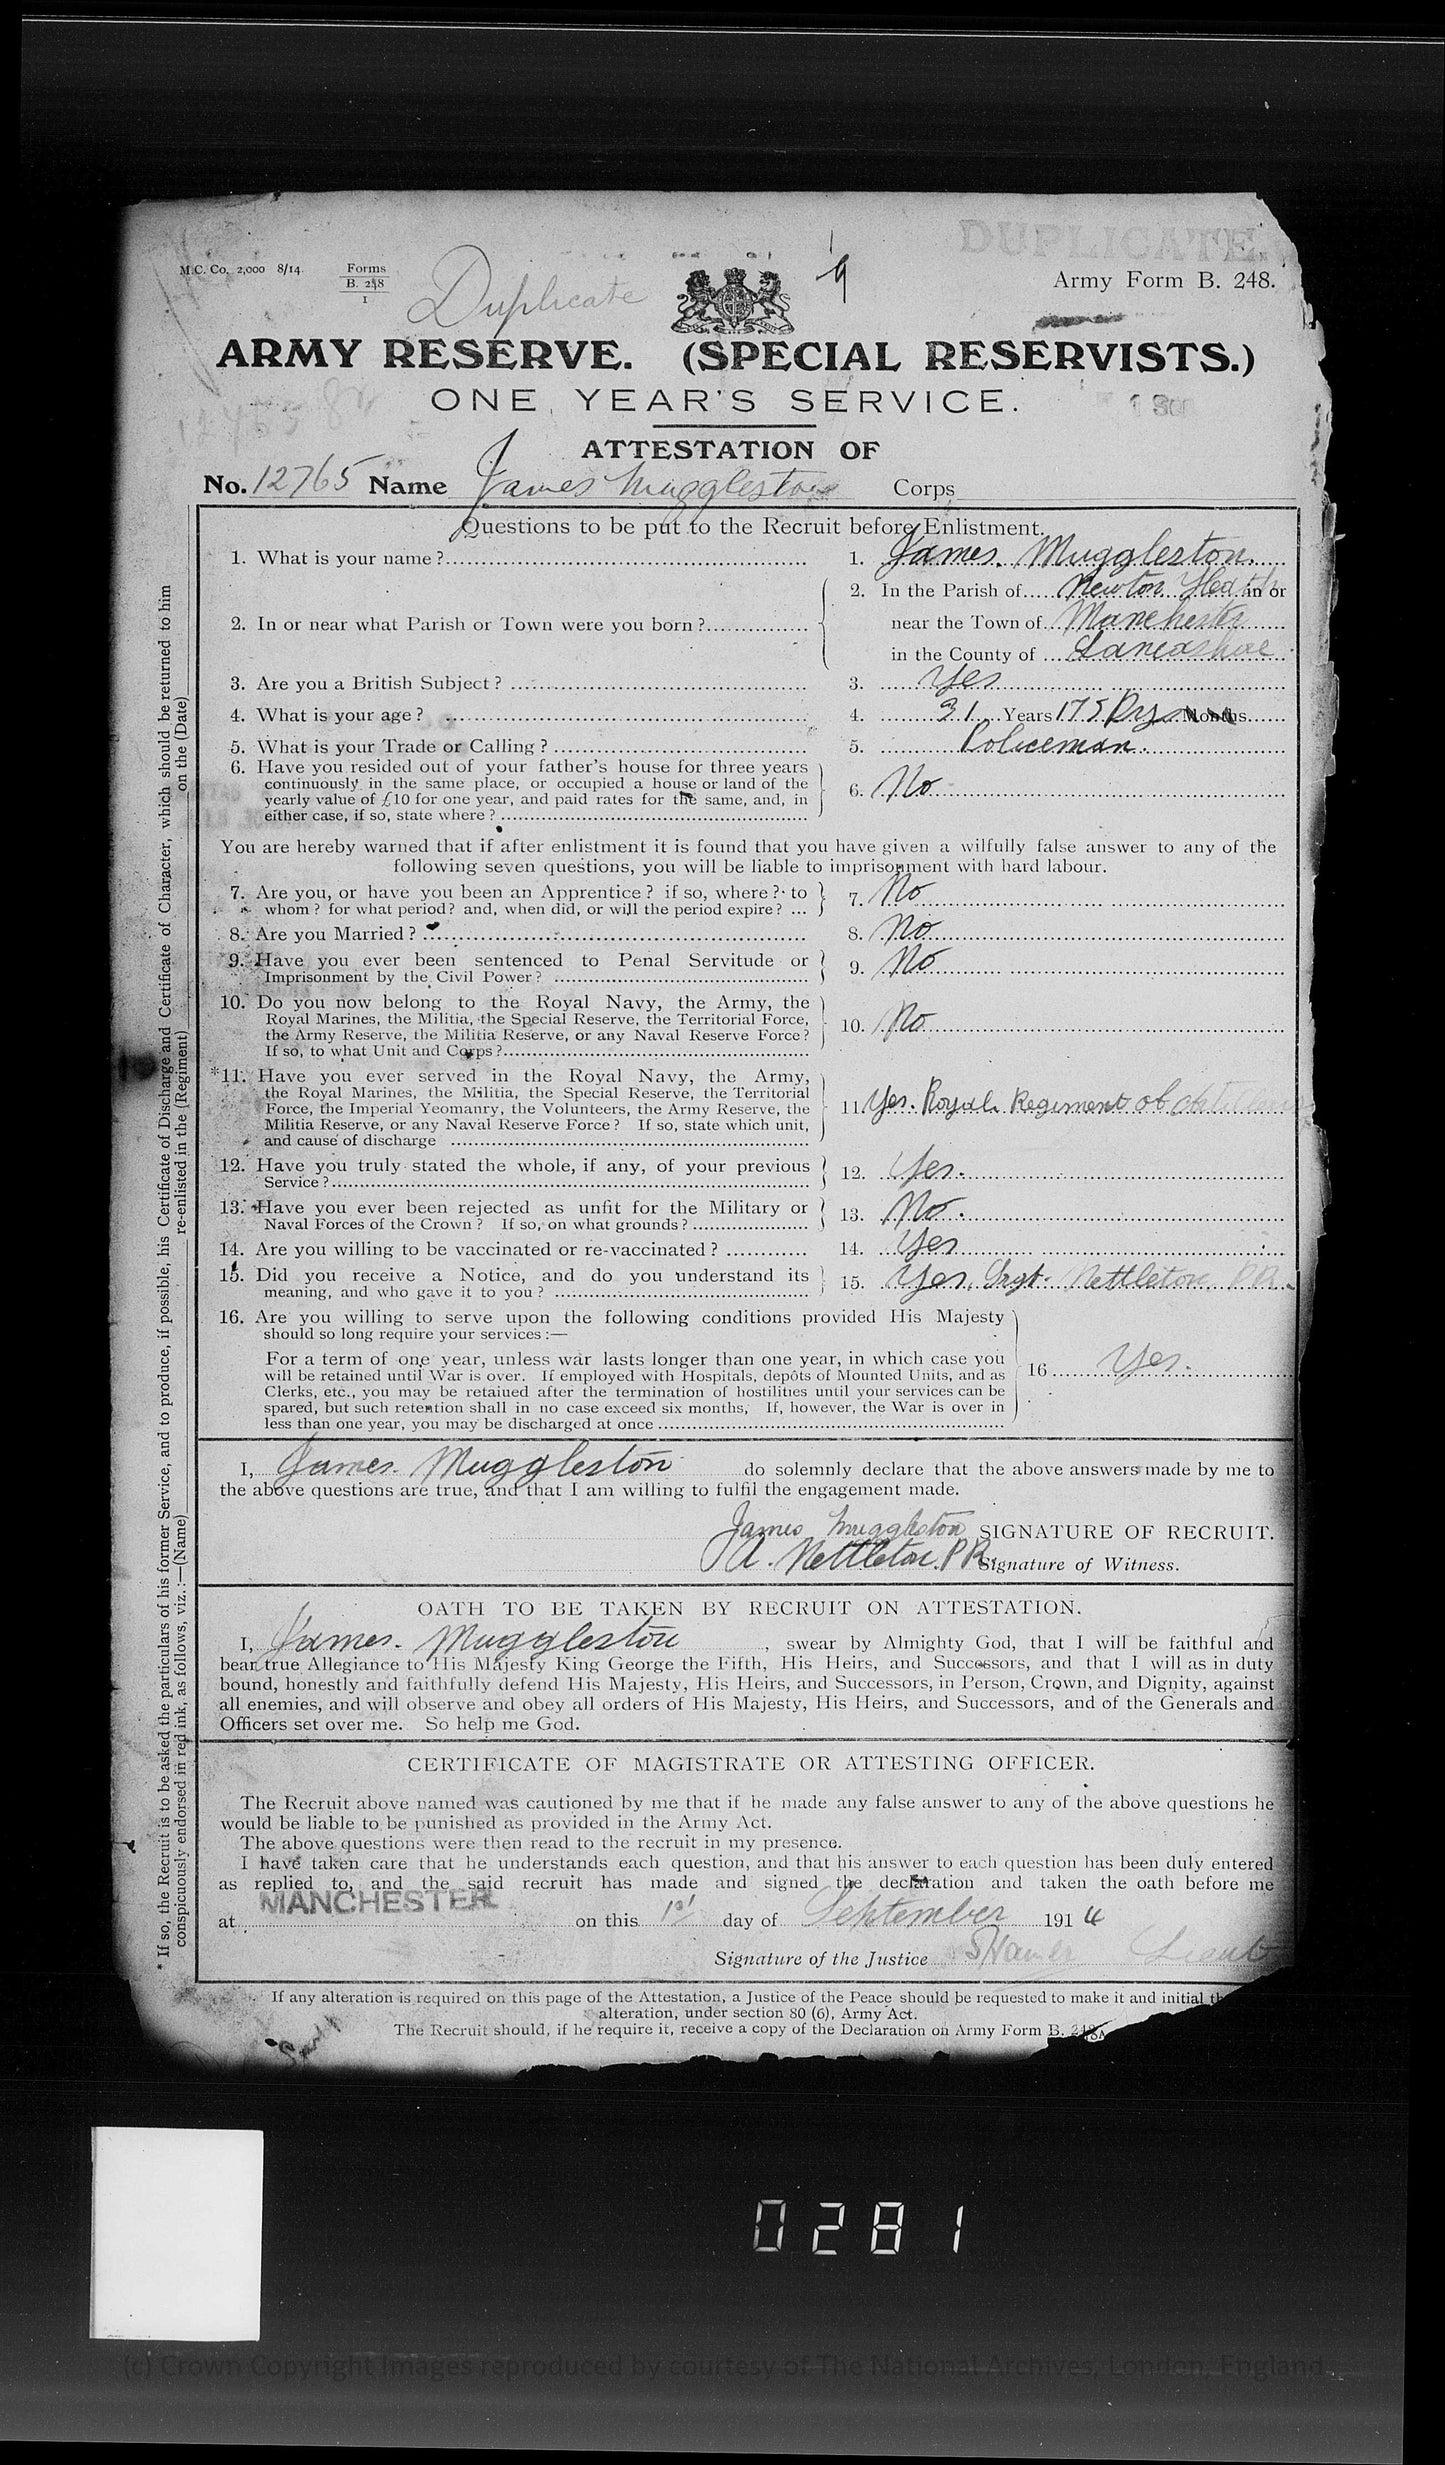 DUPLICATE.
M.C. Co. 2,000 8/14. Forms
B. 248
1
Duplicate
9
Army Form B. 248.
ARMY RESERVE. (SPECIAL RESERVISTS.)
ONE YEAR'S SERVICE.
ATTESTATION OF
No. 12765 Name James Muggleston Corps
Questions to be put to the Recruit before Enlistment.
1. What is your name? 1. James. Muggleston.
2. In or near what Parish or Town were you born? 2. In the Parish of Newton Heath in or
near the Town of Manchester
in the County of Lancashire
3. Are you a British Subject? 3. Yes
4. What is your age? 4. 31 Years 175 Dys Months
5. What is your Trade or Calling? 5. Policeman.
6. Have you resided out of your father's house for three years
continuously in the same place, or occupied a house or land of the
yearly value of £10 for one year, and paid rates for the same, and, in
either case, if so, state where? 6. No
You are hereby warned that if after enlistment it is found that you have given a wilfully false answer to any of the
following seven questions, you will be liable to imprisonment with hard labour.
7. Are you, or have you been an Apprentice? if so, where? to
whom? for what period? and, when did, or will the period expire? ... 7. No
8. Are you Married? 8. No
9. Have you ever been sentenced to Penal Servitude or
Imprisonment by the Civil Power? 9. No
10. Do you now belong to the Royal Navy, the Army, the
Royal Marines, the Militia, the Special Reserve, the Territorial Force,
the Army Reserve, the Militia Reserve, or any Naval Reserve Force?
If so, to what Unit and Corps? 10. No
*11. Have you ever served in the Royal Navy, the Army,
the Royal Marines, the Militia, the Special Reserve, the Territorial
Force, the Imperial Yeomanry, the Volunteers, the Army Reserve, the
Militia Reserve, or any Naval Reserve Force? If so, state which unit,
and cause of discharge 11. Yes. Royal Regiment of Artillery
12. Have you truly stated the whole, if any, of your previous
Service? 12. Yes.
13. Have you ever been rejected as unfit for the Military or
Naval Forces of the Crown? If so, on what grounds? 13. No.
14. Are you willing to be vaccinated or re-vaccinated? 14. Yes
15. Did you receive a Notice, and do you understand its
meaning, and who gave it to you? 15. Yes, Srgt. Nettleton P.R.
16. Are you willing to serve upon the following conditions provided His Majesty
should so long require your services:—
For a term of one year, unless war lasts longer than one year, in which case you
will be retained until War is over. If employed with Hospitals, depôts of Mounted Units, and as
Clerks, etc., you may be retained after the termination of hostilities until your services can be
spared, but such retention shall in no case exceed six months, If, however, the War is over in
less than one year, you may be discharged at once 16 Yes.
I, James. Muggleston do solemnly declare that the above answers made by me to
the above questions are true, and that I am willing to fulfil the engagement made.
James Muggleston SIGNATURE OF RECRUIT.
A. Nettleton. P R. Signature of Witness.
OATH TO BE TAKEN BY RECRUIT ON ATTESTATION.
I, James. Muggleston, swear by Almighty God, that I will be faithful and
bear true Allegiance to His Majesty King George the Fifth, His Heirs, and Successors, and that I will as in duty
bound, honestly and faithfully defend His Majesty, His Heirs, and Successors, in Person, Crown, and Dignity, against
all enemies, and will observe and obey all orders of His Majesty, His Heirs, and Successors, and of the Generals and
Officers set over me. So help me God.
CERTIFICATE OF MAGISTRATE OR ATTESTING OFFICER.
The Recruit above named was cautioned by me that if he made any false answer to any of the above questions he
would be liable to be punished as provided in the Army Act.
The above questions were then read to the recruit in my presence.
I have taken care that he understands each question, and that his answer to each question has been duly entered
as replied to, and the said recruit has made and signed the declaration and taken the oath before me
at MANCHESTER on this 1st day of September 1914
Signature of the Justice Lieut
If any alteration is required on this page of the Attestation, a Justice of the Peace should be requested to make it and initial
alteration, under section 80 (6), Army Act.
The Recruit should, if he require it, receive a copy of the Declaration on Army Form B. 248A
* If so, the Recruit is to be asked the particulars of his former Service, and to produce, if possible, his Certificate of Discharge and Certificate of Character, which should be returned to him
conspicuously endorsed in red ink, as follows, viz.:—(Name) re-enlisted in the (Regiment) on the (Date)
0281
(c) Crown Copyright Images reproduced by courtesy of The National Archives, London, England.